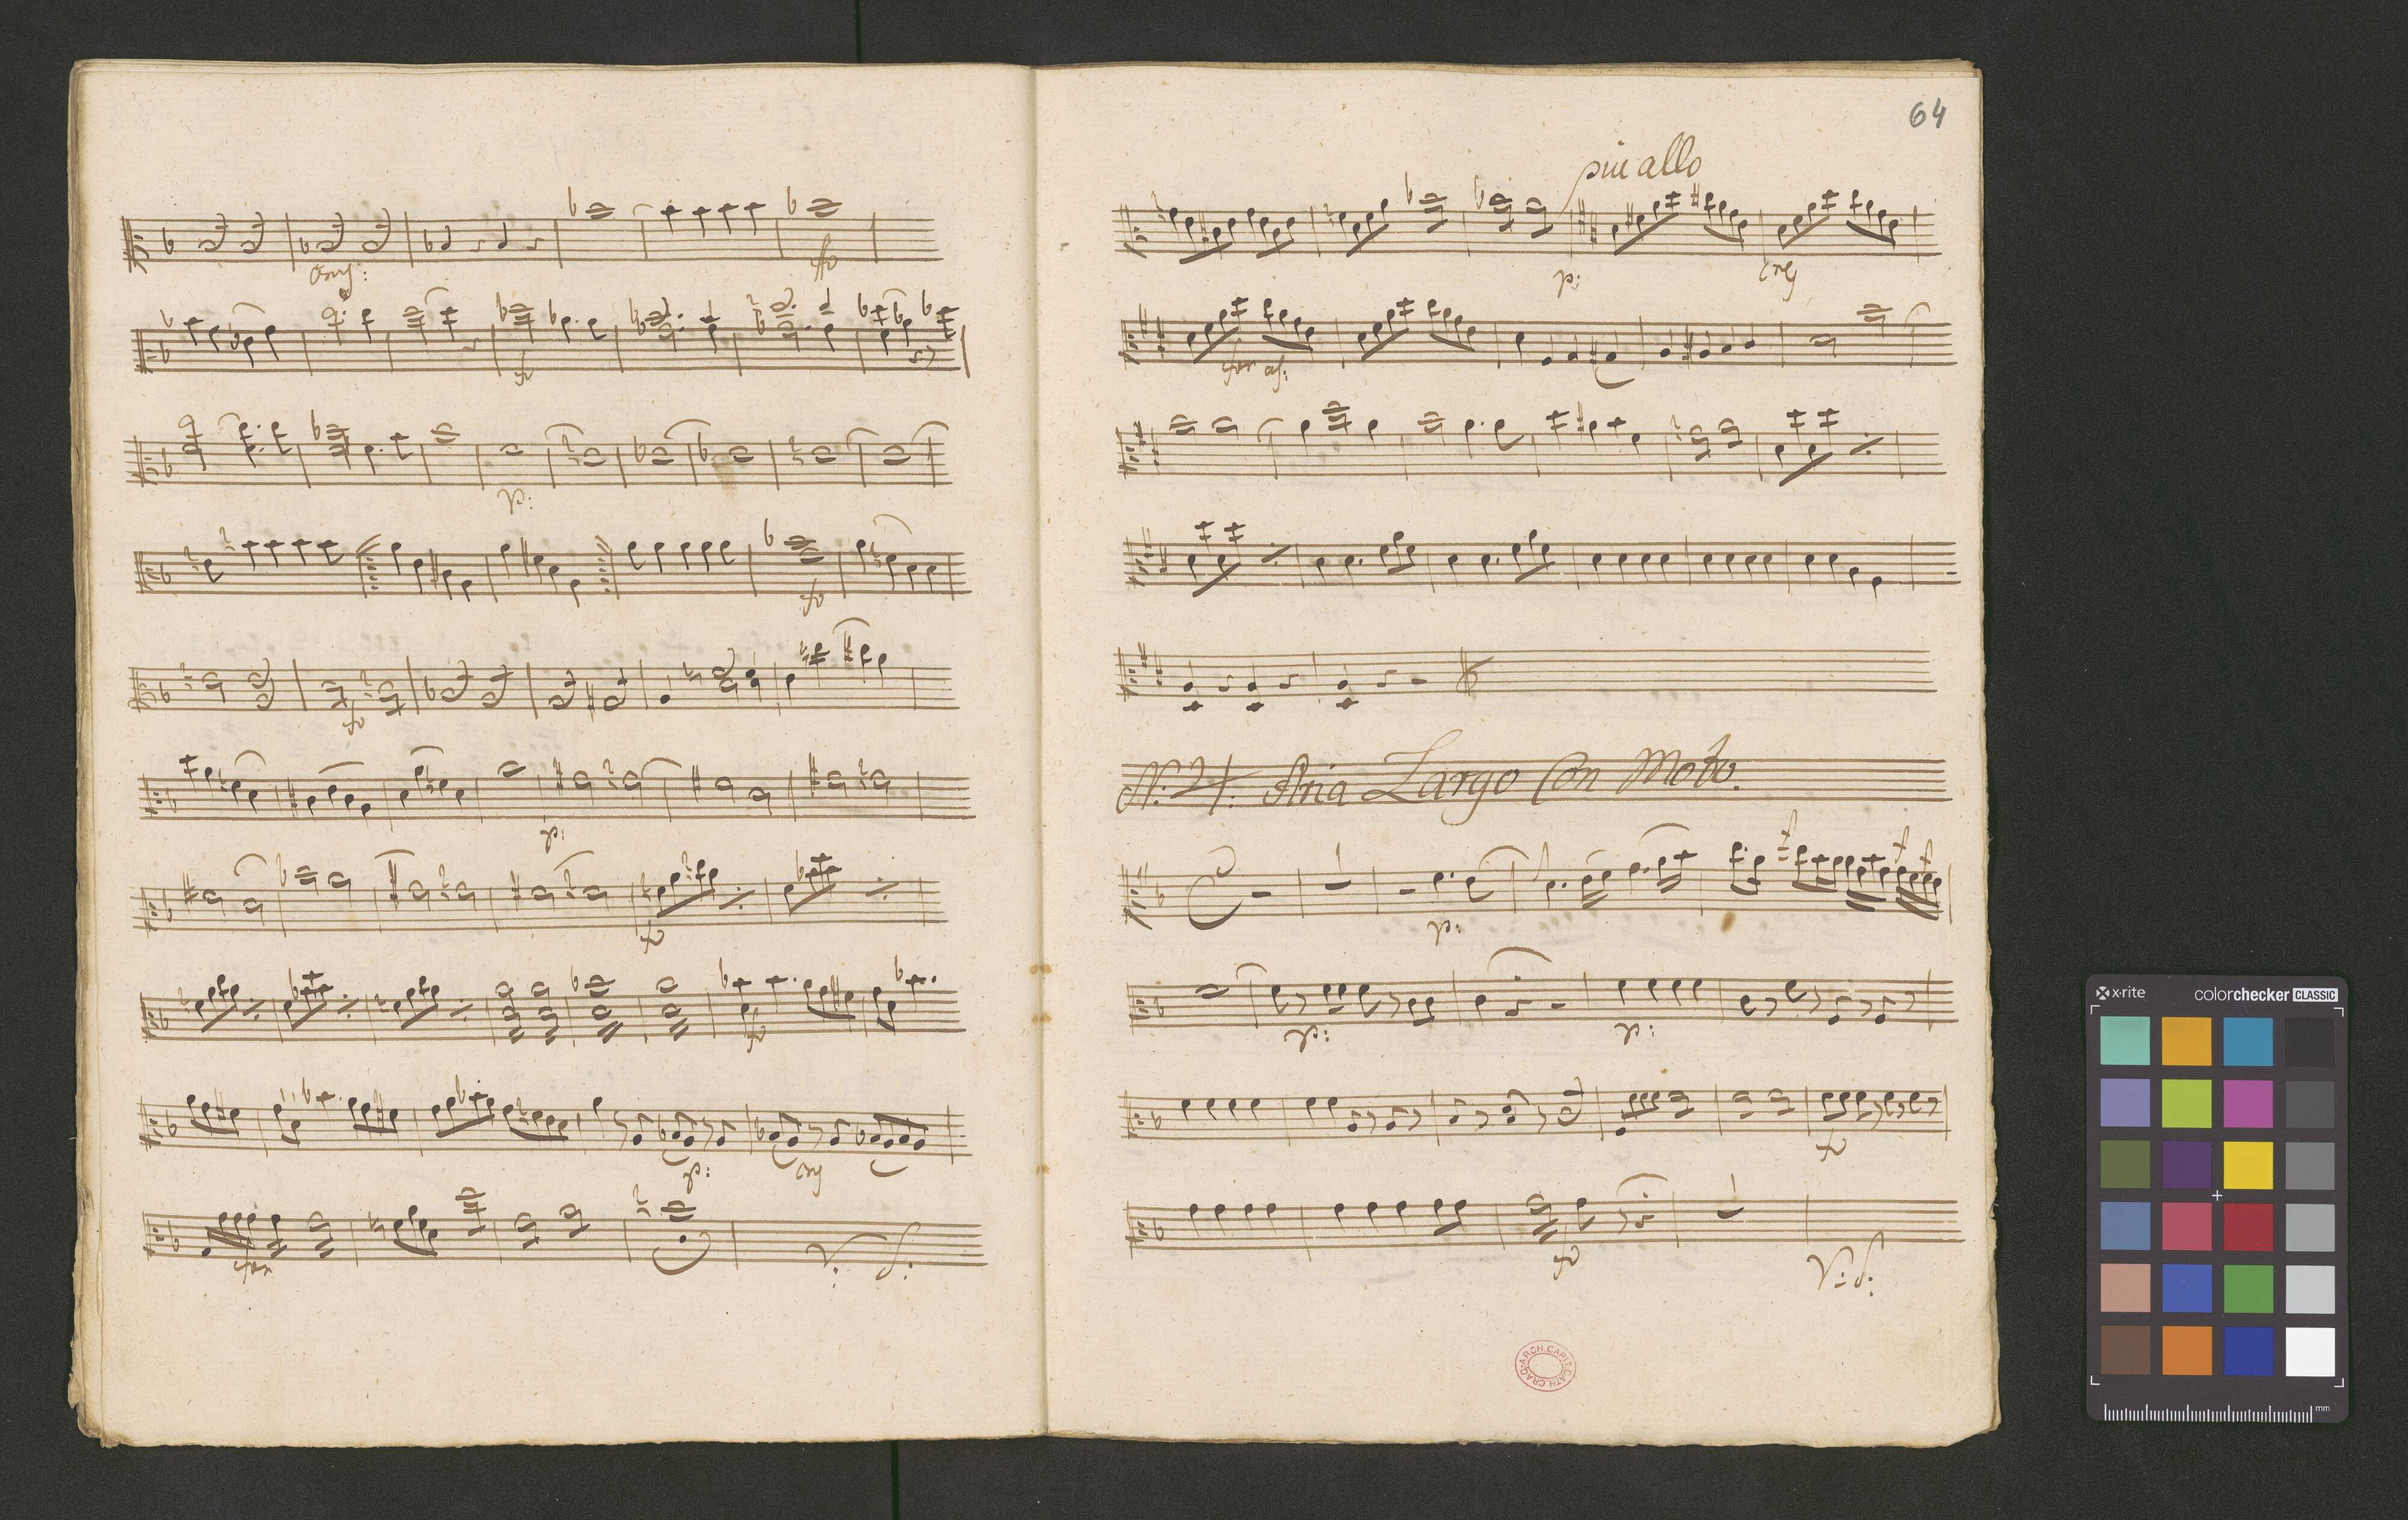 cres:
ffo
fo
p:
fo
fo
p:
f
f
p: cres
for
V: S:
64
piu allo
p: cres
for as:
N: 24: Aria Largo Con Moto.
p: f f f
p: p:
f
fo
V: S:
ARCH. CAPIT. CATH. CRAC.
x-rite colorchecker CLASSIC
mm